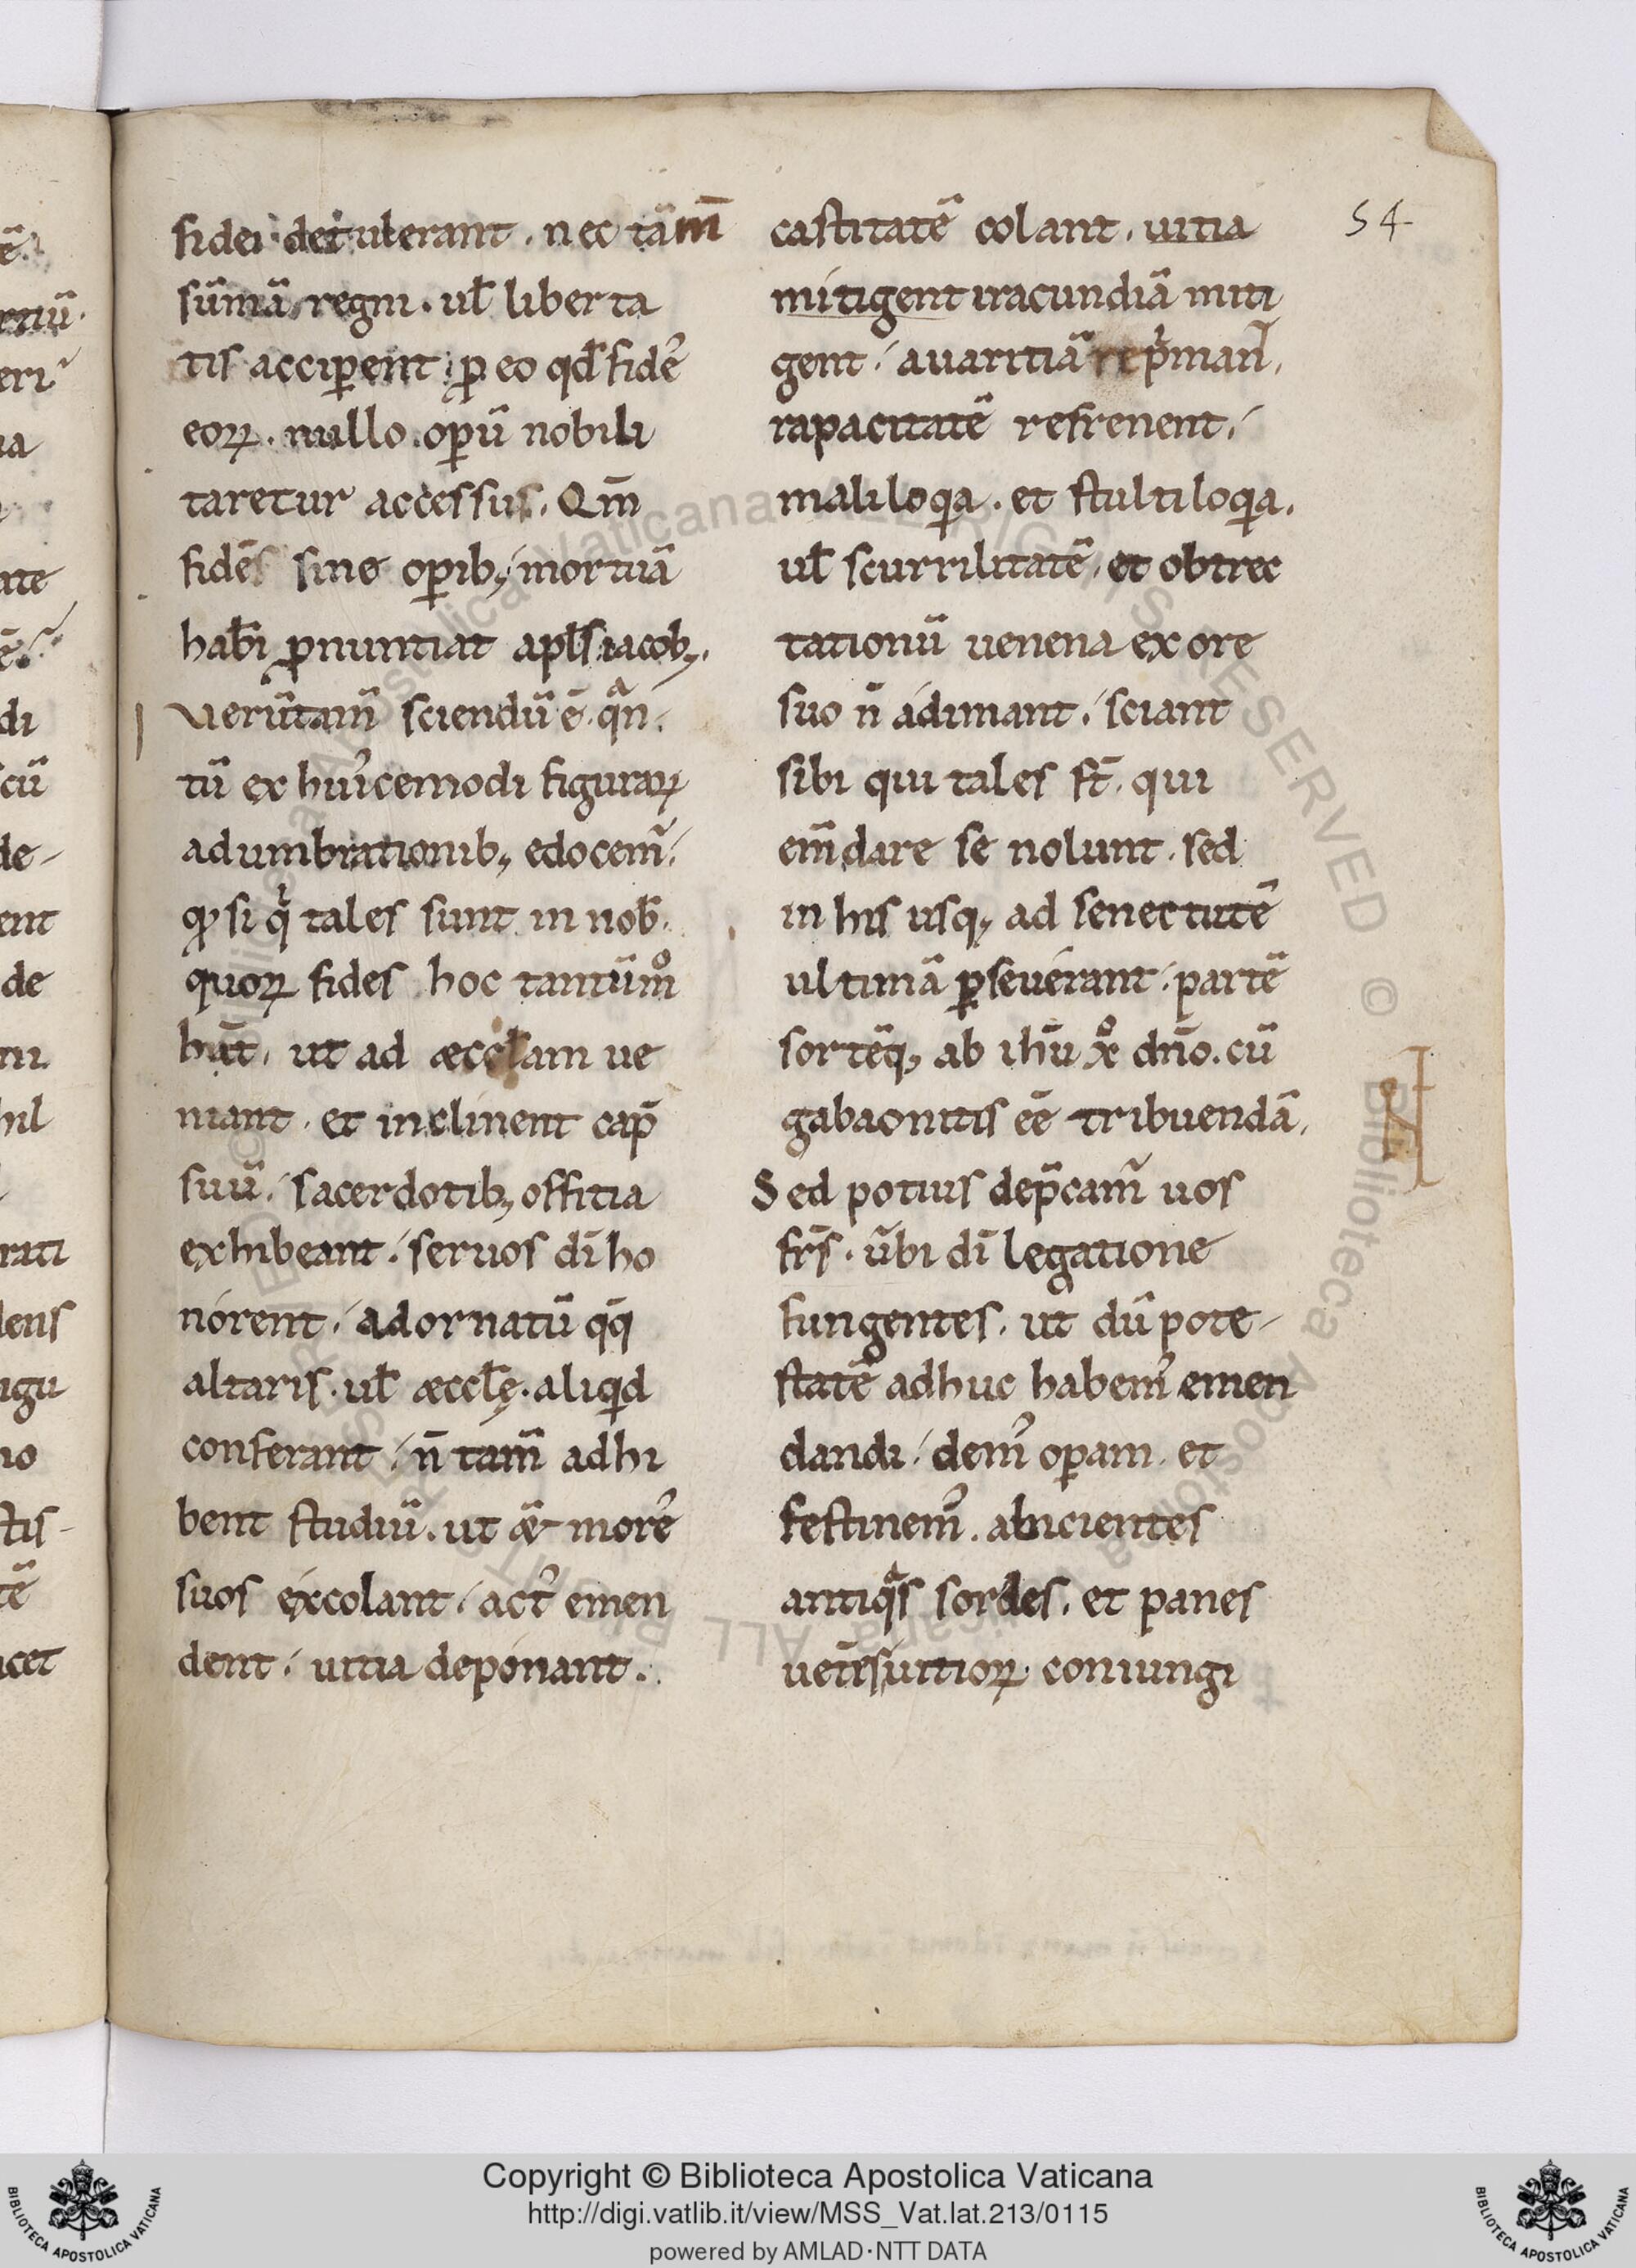 fidei detulerant. nec tam̄
sūmā regni. ul̄ liberta
tis acciperent; ꝓ eo qd̄ fidē
eoꝝ. nullo opū nobili
taretur accessus. Qm̄
fidēs sine opib; mortuā
hab̄i ꝓnuntiat apl̄s iacob;.
Verūtam̄ sciendū ē. qͣn
tū ex hui᾽cemodi figuraꝝ
adumbrationib; edocem̄.
qͦ si qͥ tales sunt in nob̄.
quoꝝ fides hoc tantūmͦ
hāt, ut ad æccl̄am ue
niant. et inclinent cap̄
suū. sacerdotib; offitia
exhibeant. seruos dī ho
norent. adornatū qq̄
altaris. ul̄ æccl̄ę. aliqd
conferant. n̄ tam̄ adhi
bent studiū. ut & more᾽
suos excolant. act᾽ emen
dent. uitia deponant.
castitatē colant. uitia
mitigent iracundiā miti
gent. auaritiā rep̍man̄.
rapacitatē refrenent.
maliloqa. et stultiloqa.
ul̄ scurrilitatē. et obtrec
tationū uenena ex ore
suo n̄ adimant. sciant
sibi qui tales st̄. qui
em̄dare se nolunt. sed
in his usq; ad senectutē
ultimā ꝑseuerant. partē
sortēq; ab ihū xͦ dn̄o. cū
gabaonitis eē tribuendā.
Sed potius dep̄cam̄ uos
fr̄s. ūbi dī legatione
fungentes. ut dū pote-
statē adhuc habem᾽ emen
dandi. dem᾽ opam. et
festinem᾽. abicientes
antiqͣs sordes. et panes
uet̄sūitioꝝ coniungi
54
ē.
rtiū.
eri
ia
ate
ē.
di
cū
de-
ent
de
ni.
hil
rati
dens
igu
no
stis-
tē
icet
Copyright © Biblioteca Apostolica Vaticana
http://digi.vatlib.it/view/MSS_Vat.lat.213/0115
powered by AMLAD·NTT DATA
BIBLIOTECA APOSTOLICA VATICANA
BIBLIOTECA APOSTOLICA VATICANA